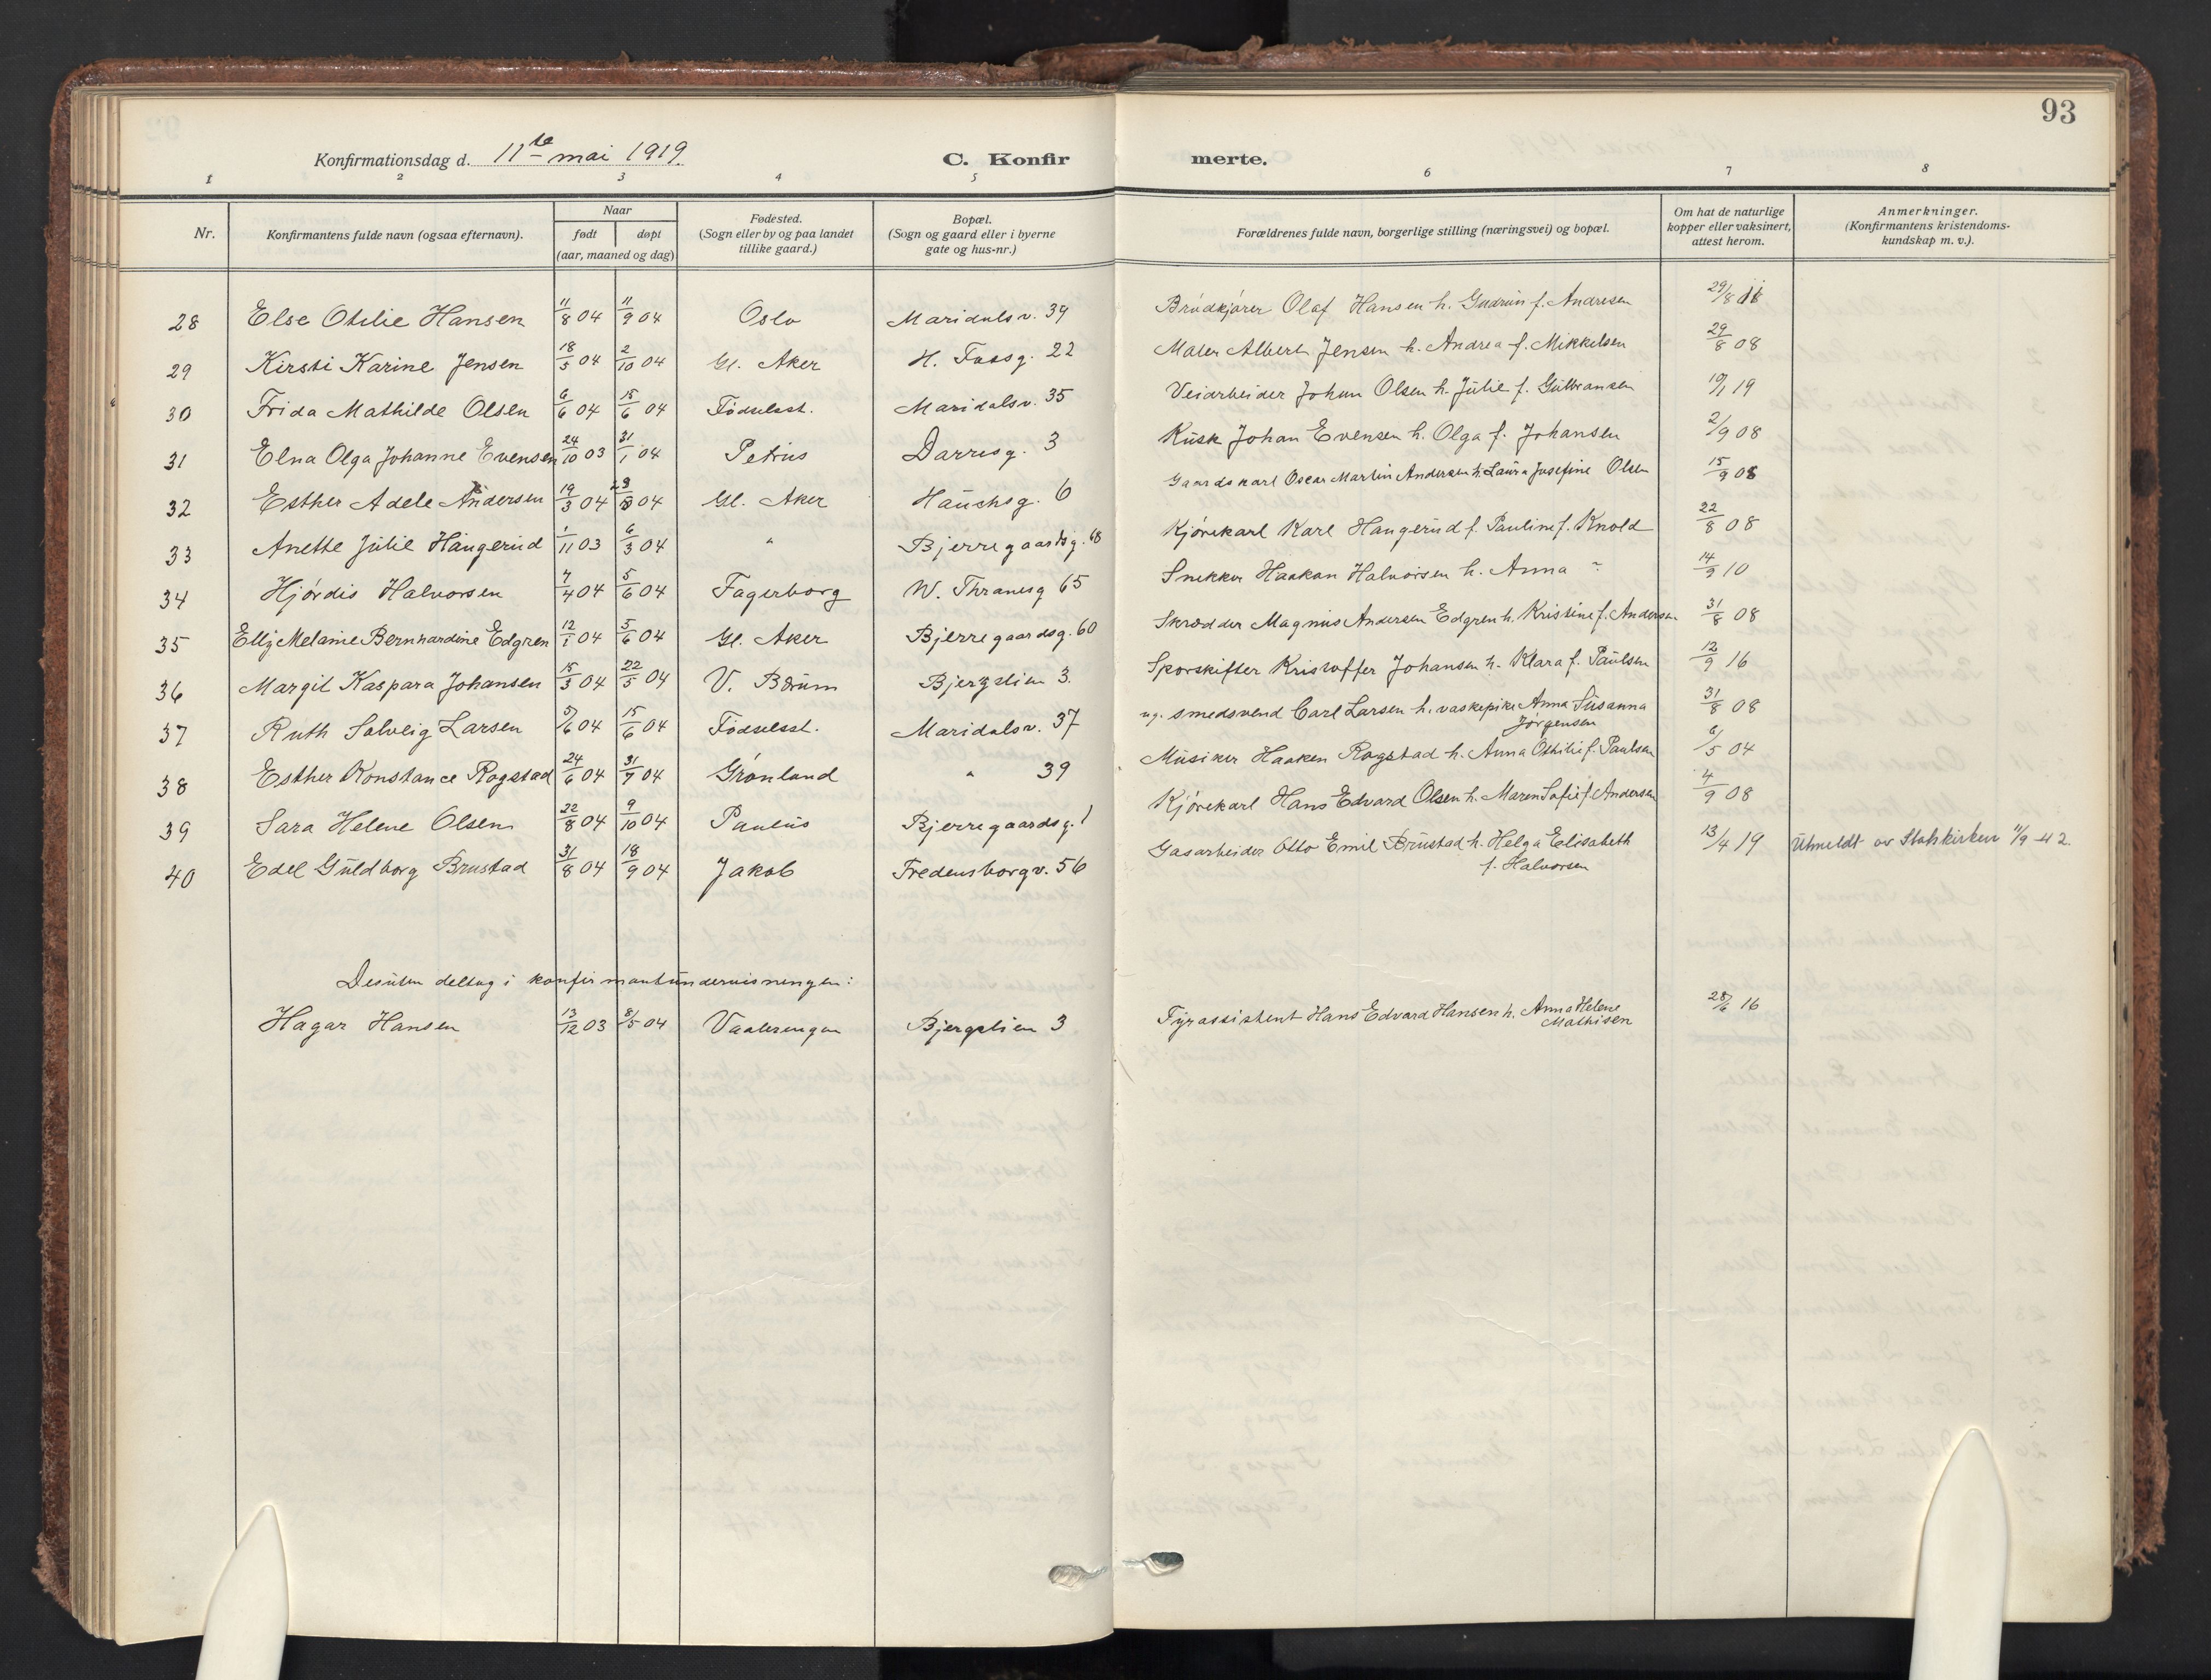 93
Konfirmationsdag d. 11te mai 1919. C. Konfirmerte.
1 2 3 4 5 6 7 8
Nr. Konfirmantens fulde navn (ogsaa efternavn). Naar født døpt (aar, maaned og dag) Fødested. (Sogn eller by og paa landet tillike gaard.) Bopæl. (Sogn og gaard eller i byerne gate og hus-nr.) Forældrenes fulde navn, borgerlige stilling (næringsvei) og bopæl. Om hat de naturlige kopper eller vaksinert, attest herom. Anmerkninger. (Konfirmantens kristendoms-kundskap m. v.).
28 Else Otilie Hansen 11/8 04 11/9 04 Oslo Maridalsv. 39 Brødkjører Olaf Hansen h. Gudrun f. Andresen 29/8 11
29 Kirsti Karine Jensen 18/5 04 2/10 04 Gl. Aker H. Fossg. 22 Maler Albert Jensen h. Andrea f. Mikkelsen 29/8 08
30 Frida Mathilde Olsen 6/6 04 15/6 04 Fødselsst. Maridalsv. 35 Veiarbeider Johan Olsen h. Julie f. Gulbransen 19/1 19
31 Elna Olga Johanne Evensen 24/10 03 31/1 04 Petrus Darresg. 3 Kusk Johan Evensen h. Olga f. Johansen 2/9 08
32 Esther Adele Andersen 19/3 04 04 Gl. Aker Hauchsg. 6 Gaardskarl Oscar Martin Andersen h. Laura Josefine Olsen 15/9 08
33 Anette Julie Haugerud 1/11 03 6/3 04 " Bjerregaardsg. 68 Kjørekarl Karl Haugerud f. Pauline f. Knold 22/8 08
34 Hjørdis Halvorsen 7/4 04 5/6 04 Fagerborg W. Thranesg 65 Snekker Haakon Halvorsen h. Anna ~ 14/9 10
35 Elly Melanie Bernhardine Edgren 12/1 04 5/6 04 Gl. Aker Bjerregaardsg. 60 Skrædder Magnus Andersen Edgren h. Kristine f. Andersen 31/8 08
36 Margit Kaspara Johansen 15/3 04 22/5 04 V. Bærum Bjergslien 3. Sporskifter Kristoffer Johansen h. Klara f. Paulsen 12/9 16
37 Ruth Solveig Larsen 5/6 04 15/6 04 Fødselsst. Maridalsv. 37 ug. smedsvend Carl Larsen h. vaskepike Anna Susanna Jørgensen 31/8 08
38 Esther Konstance Rogstad 24/6 04 31/7 04 Grønland " 39 Musiker Haaken Rogstad h. Anna Othilie f. Paulsen 6/5 04
39 Sara Helene Olsen 22/8 04 9/10 04 Paulus Bjerregaardsg. 1 Kjørekarl Hans Edvard Olsen h. Maren Sofie f. Andersen 4/9 08
40 Edel Guldborg Brustad 31/8 04 18/9 04 Jakob Fredensborgv. 56 Gasarbeider Otto Emil Brustad h. Helga Elisabeth f. Halvorsen 13/4 19 Utmeldt av Statskirken 11/9 -42.
Desuten deltog i konfirmantundervisningen:
Hagar Hansen 13/12 03 8/5 04 Vaalerengen Bjergslien 3 Fyrassistent Hans Edvard Hansen h. Anna Helene Mathisen 28/6 16